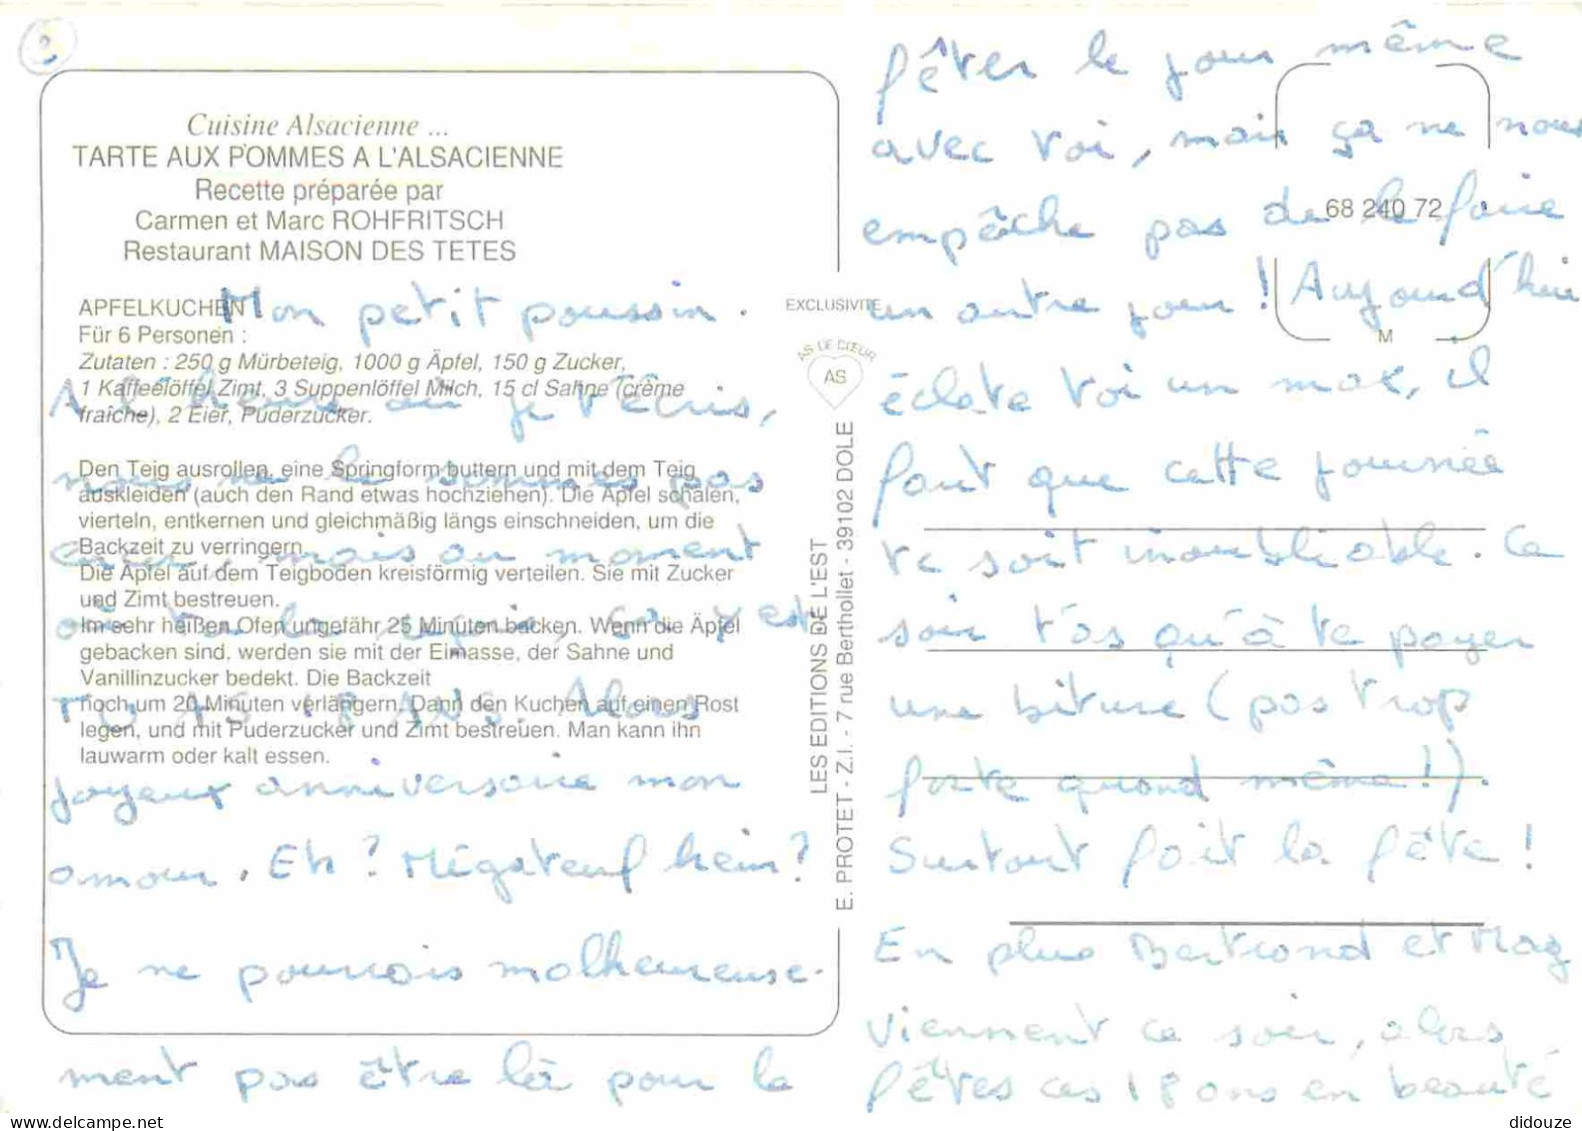 Cuisine Alsacienne ...
TARTE AUX POMMES A L'ALSACIENNE
Recette préparée par
Carmen et Marc ROHFRITSCH
Restaurant MAISON DES TETES
APFELKUCHEN
Für 6 Personen :
Zutaten : 250 g Mürbeteig, 1000 g Äpfel, 150 g Zucker,
1 Kaffeelöffel Zimt, 3 Suppenlöffel Milch, 15 cl Sahne (crème
fraîche), 2 Eier, Puderzucker.
Den Teig ausrollen, eine Springform buttern und mit dem Teig
auskleiden (auch den Rand etwas hochziehen). Die Äpfel schälen,
vierteln, entkernen und gleichmäßig längs einschneiden, um die
Backzeit zu verringern.
Die Äpfel auf dem Teigboden kreisförmig verteilen. Sie mit Zucker
und Zimt bestreuen.
Im sehr heißen Ofen ungefähr 25 Minuten backen. Wenn die Äpfel
gebacken sind, werden sie mit der Eimasse, der Sahne und
Vanillinzucker bedekt. Die Backzeit
noch um 20 Minuten verlängern. Dann den Kuchen auf einen Rost
legen, und mit Puderzucker und Zimt bestreuen. Man kann ihn
lauwarm oder kalt essen.
Mon petit poussin.
A l'heure où je t'écris,
nous ne le sommes pas
encore, mais au moment
où tu la reçois, ça y est
TU AS 18 ANS. Alors
joyeux anniversaire mon
amour. Eh ? Mégateuf hein ?
Je ne pourrais malheureuse-
ment pas être là pour le
EXCLUSIVITE
AS DE CŒUR
AS
LES EDITIONS DE L'EST
E. PROTET - Z.I. - 7 rue Berthollet - 39102 DOLE
68 240 72
M
fêter le jour même
avec toi, mais ça ne nous
empêche pas de le faire
un autre jour ! Aujourd'hui
éclate toi un max, il
faut que cette journée
te soit inoubliable. Ce
soir t'as qu'à te payer
une biture (pas trop
forte quand même !).
Surtout fait la fête !
En plus Bertrand et Mag
viennent ce soir, alors
fêtes ces 18 ans en beauté
didouze